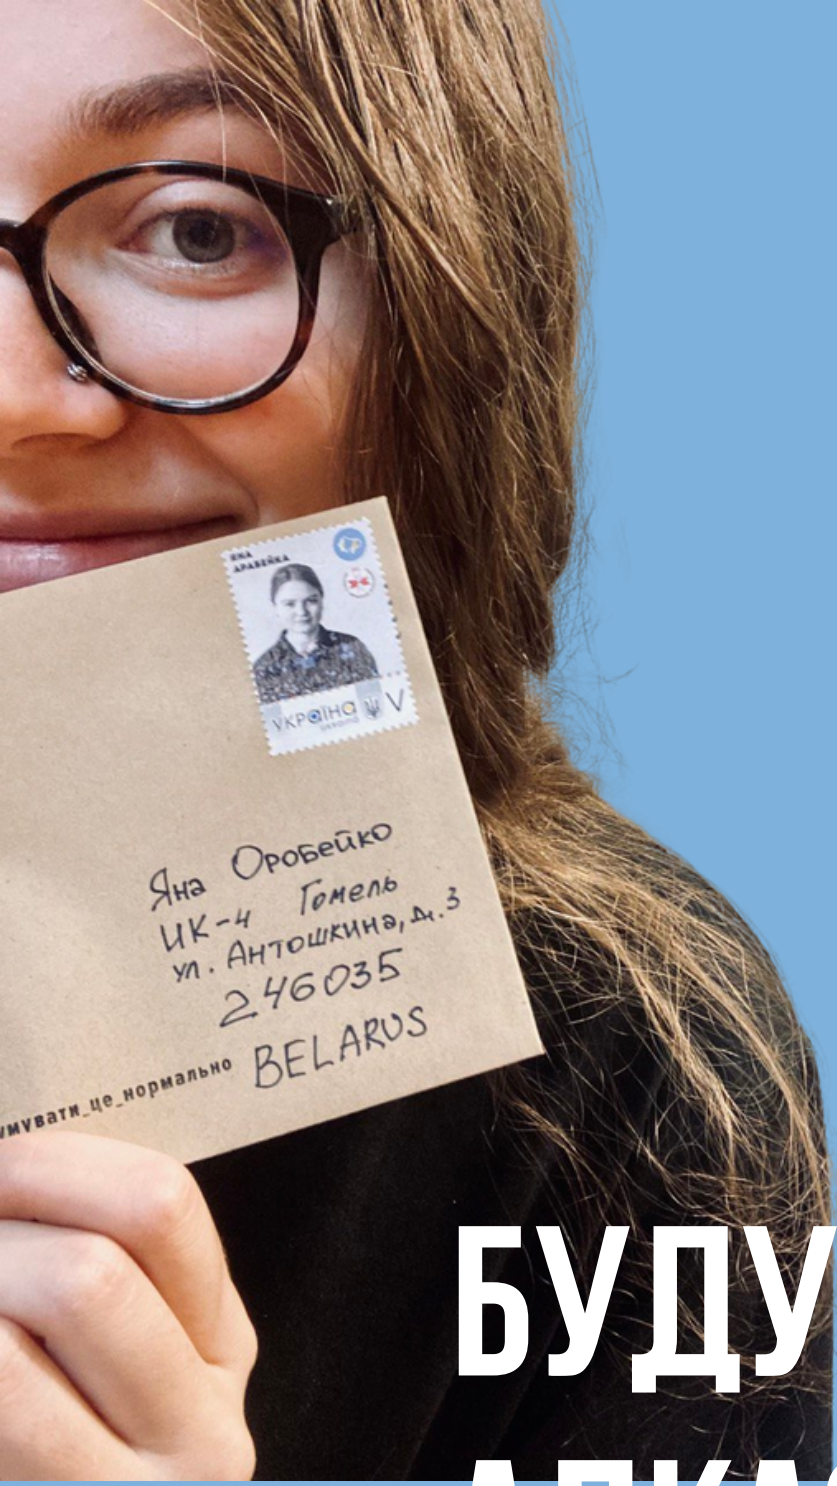 ЯНА
АРАБЕЙКА
УКРАЇНА
UKRAINE
V
Яна Оробейко
ИК-4 Гомель
ул. Антошкина, д. 3
246035
BELARUS
умувати_це_нормально
БУДУ